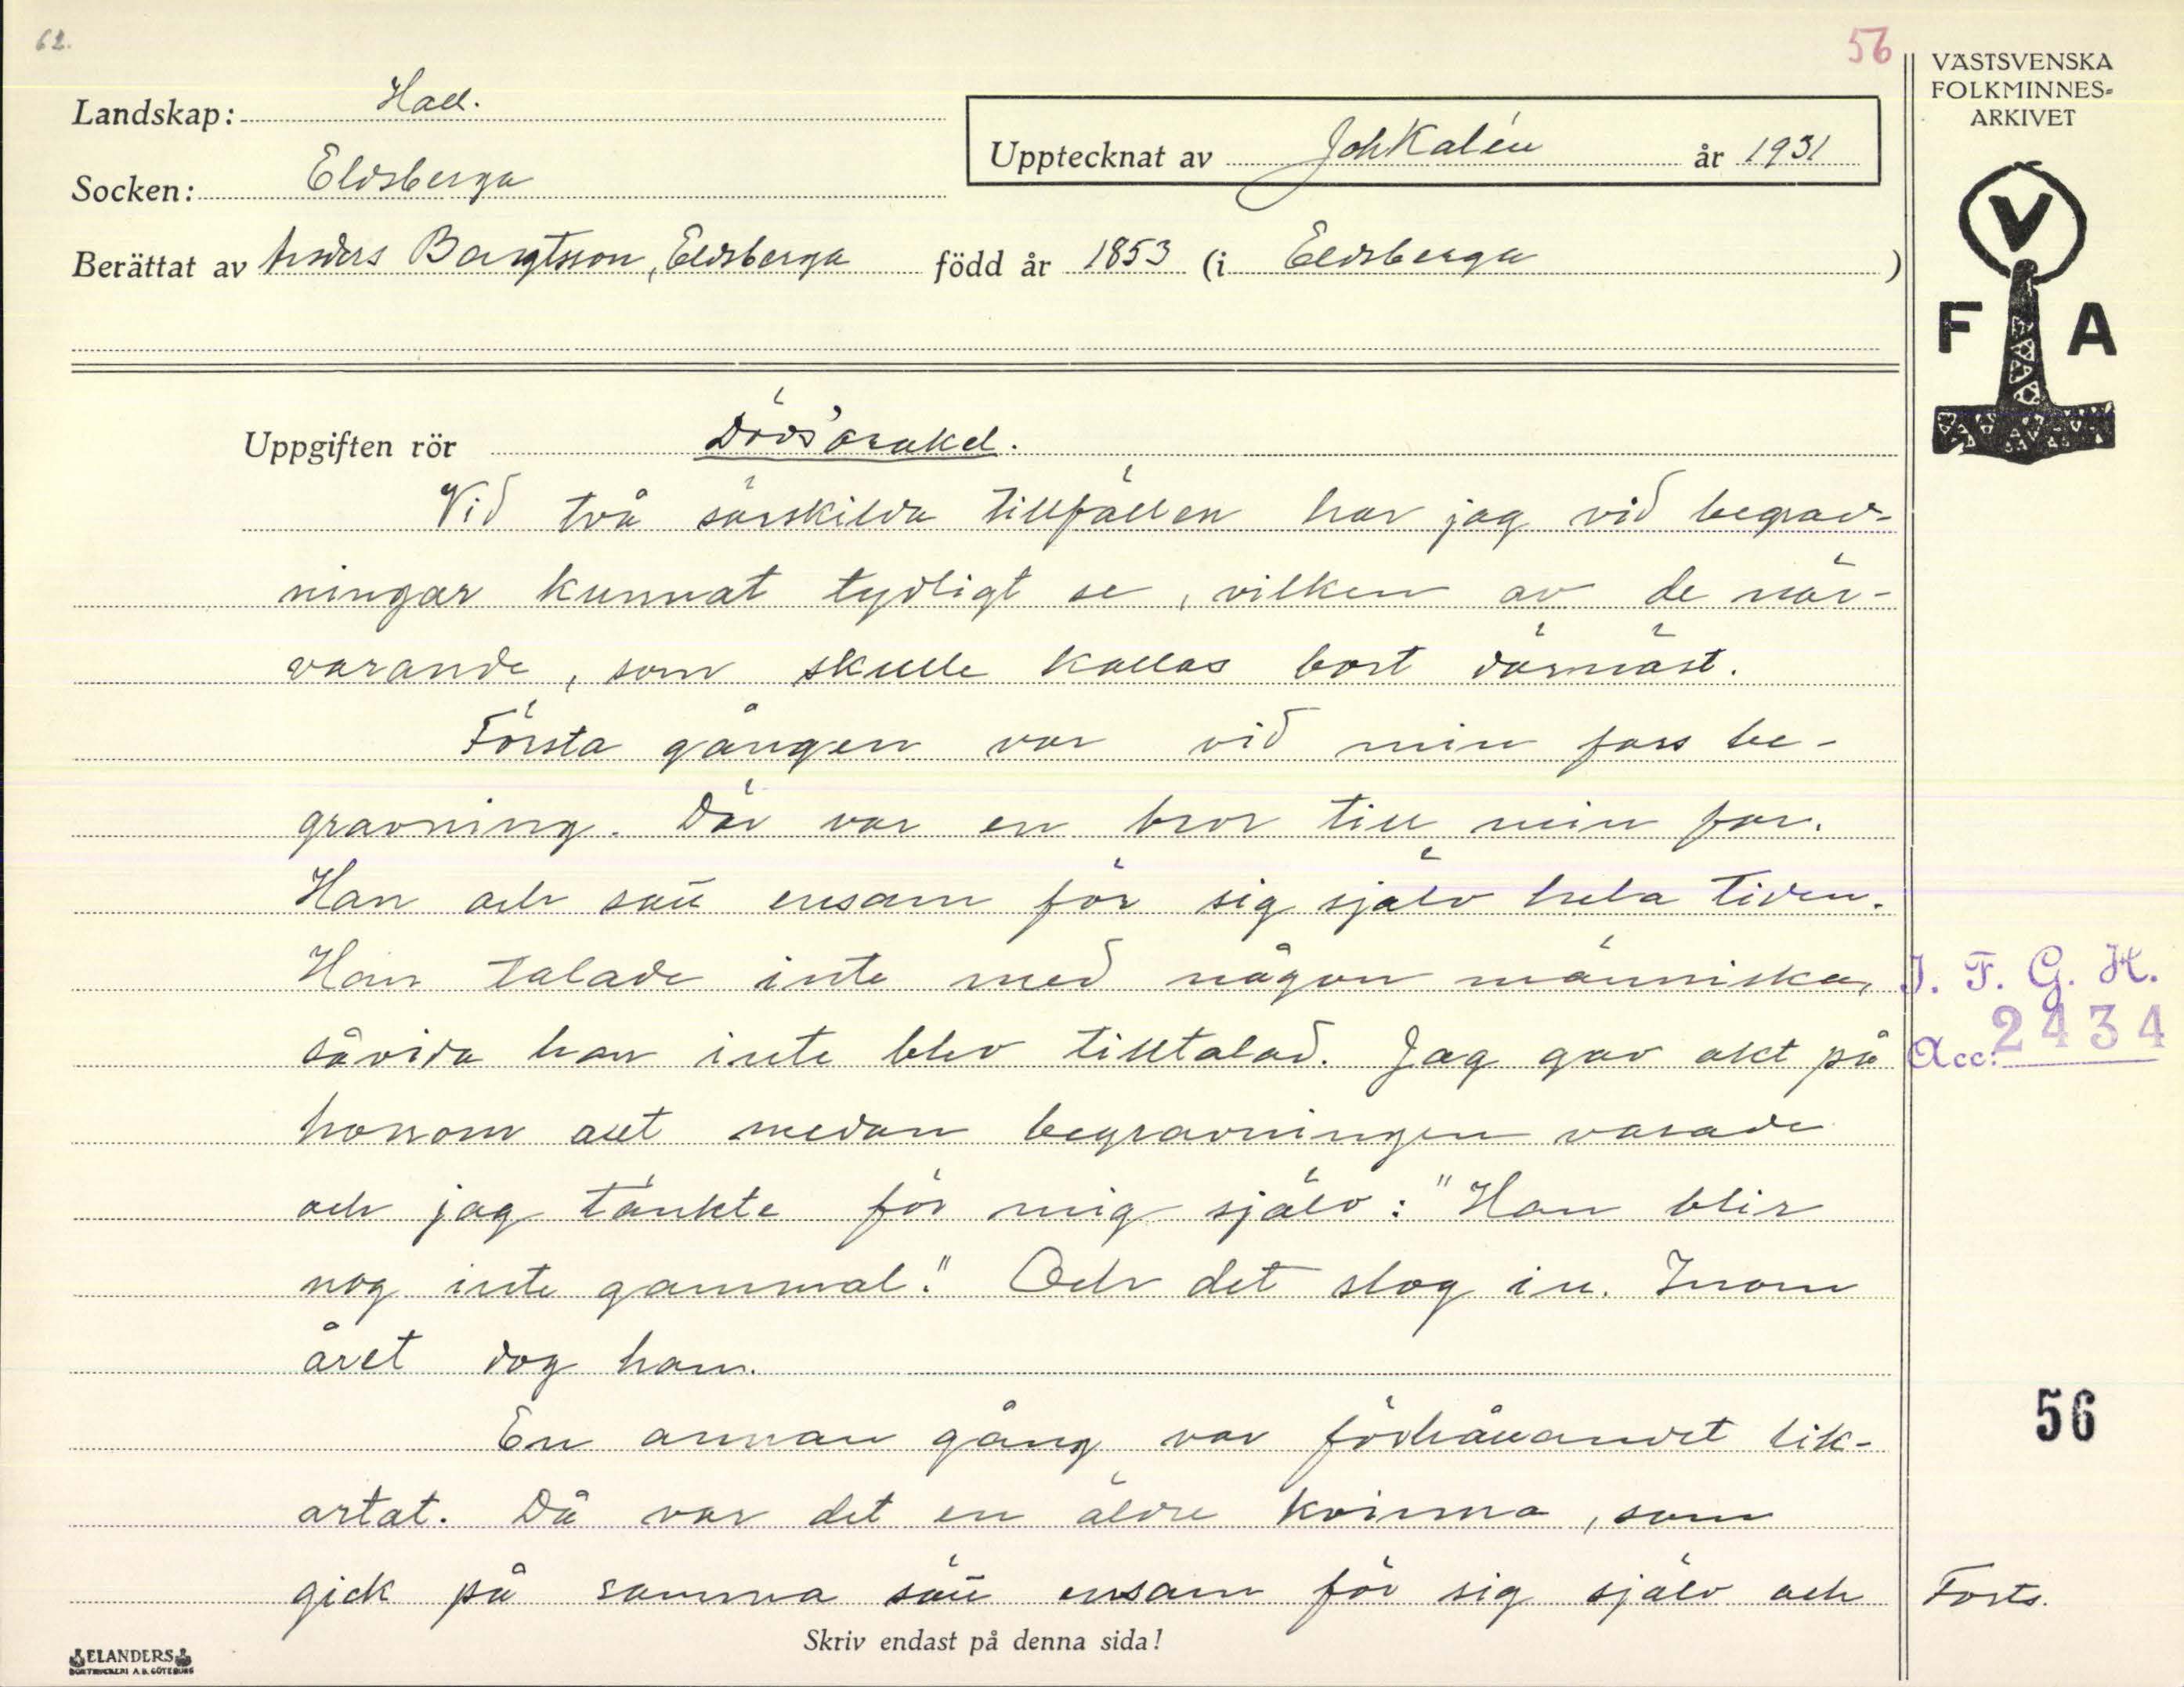 62.
56
VÄSTSVENSKA
FOLKMINNES-
ARKIVET
Landskap: Hall.
Upptecknat av Joh Kalén år 1931
Socken: Eldsberga
Berättat av Anders Bengtsson, Eldsberga född år 1853 (i Eldsberga )
V
F A
Uppgiften rör Dödsorakel.
Vid två särskilda tillfällen har jag vid begrav-
ningar kunnat tydligt se, vilken av de när-
varande, som skulle kallas bort därnäst.
Första gången var vid min fars be-
gravning. Där var en bror till min far.
Han gick ensam för sig själv hela tiden.
Han talade inte med någon människa,
såvida han inte blev tilltalad. Jag gav akt på
honom allt medan begravningen varade
och jag tänkte för mig själv: "Han blir
nog inte gammal." Och det slog in. Inom
året dog han.
En annan gång var förhållandet lik-
artat. Då var det en äldre kvinna, som
gick på samma sätt ensam för sig själv och
Forts.
I. F. G. H.
Acc: 2434
56
Skriv endast på denna sida!
ELANDERS
BOKTRYCKERI A.B. GÖTEBORG